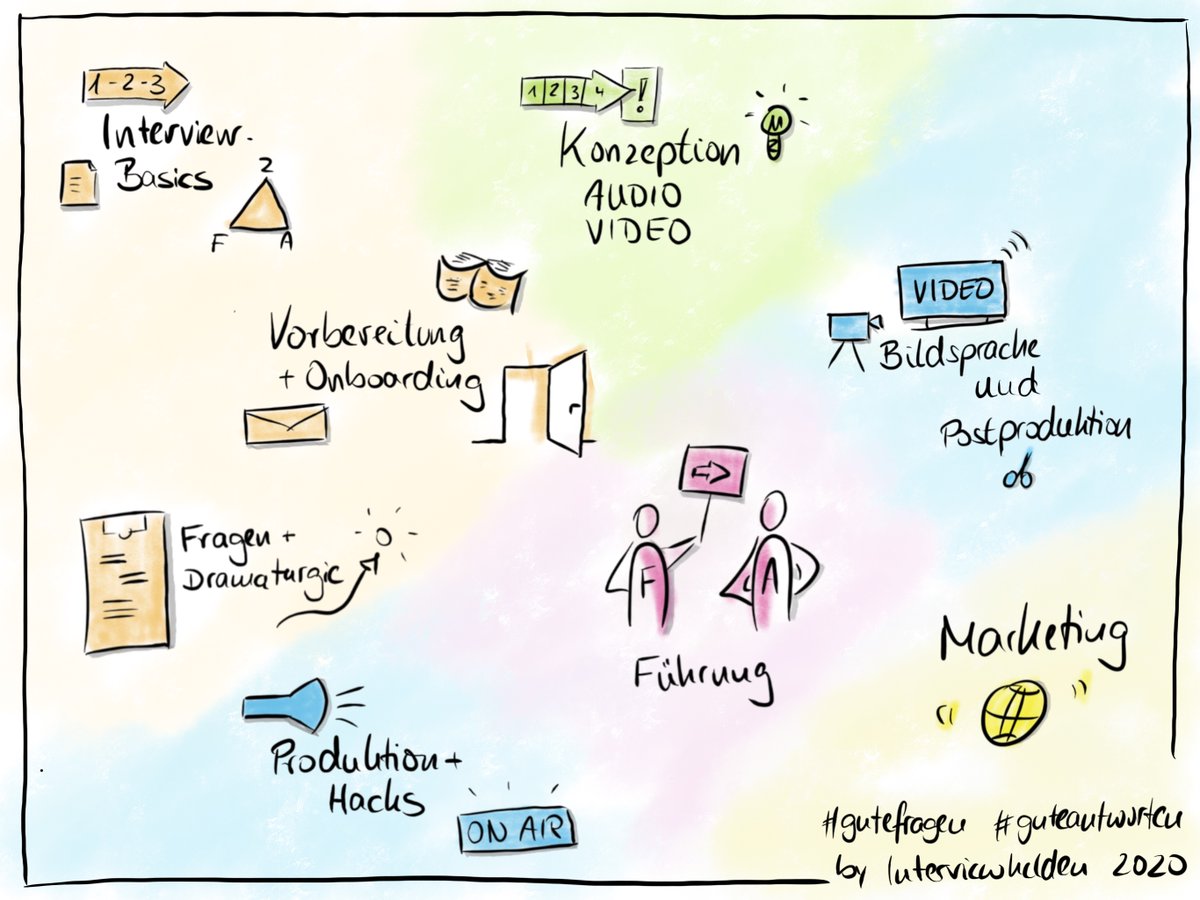 1-2-3
Interview-
Basics
Z
F A
1 2 3 4 !
Konzeption
AUDIO
VIDEO
Vorbereitung
+ Onboarding
VIDEO
Bildsprache
und
Postproduktion
Fragen +
Dramaturgie
F A
Führung
Marketing
#
Produktion +
Hacks
ON AIR
#gutefragen #guteantworten
by Interviewhelden 2020